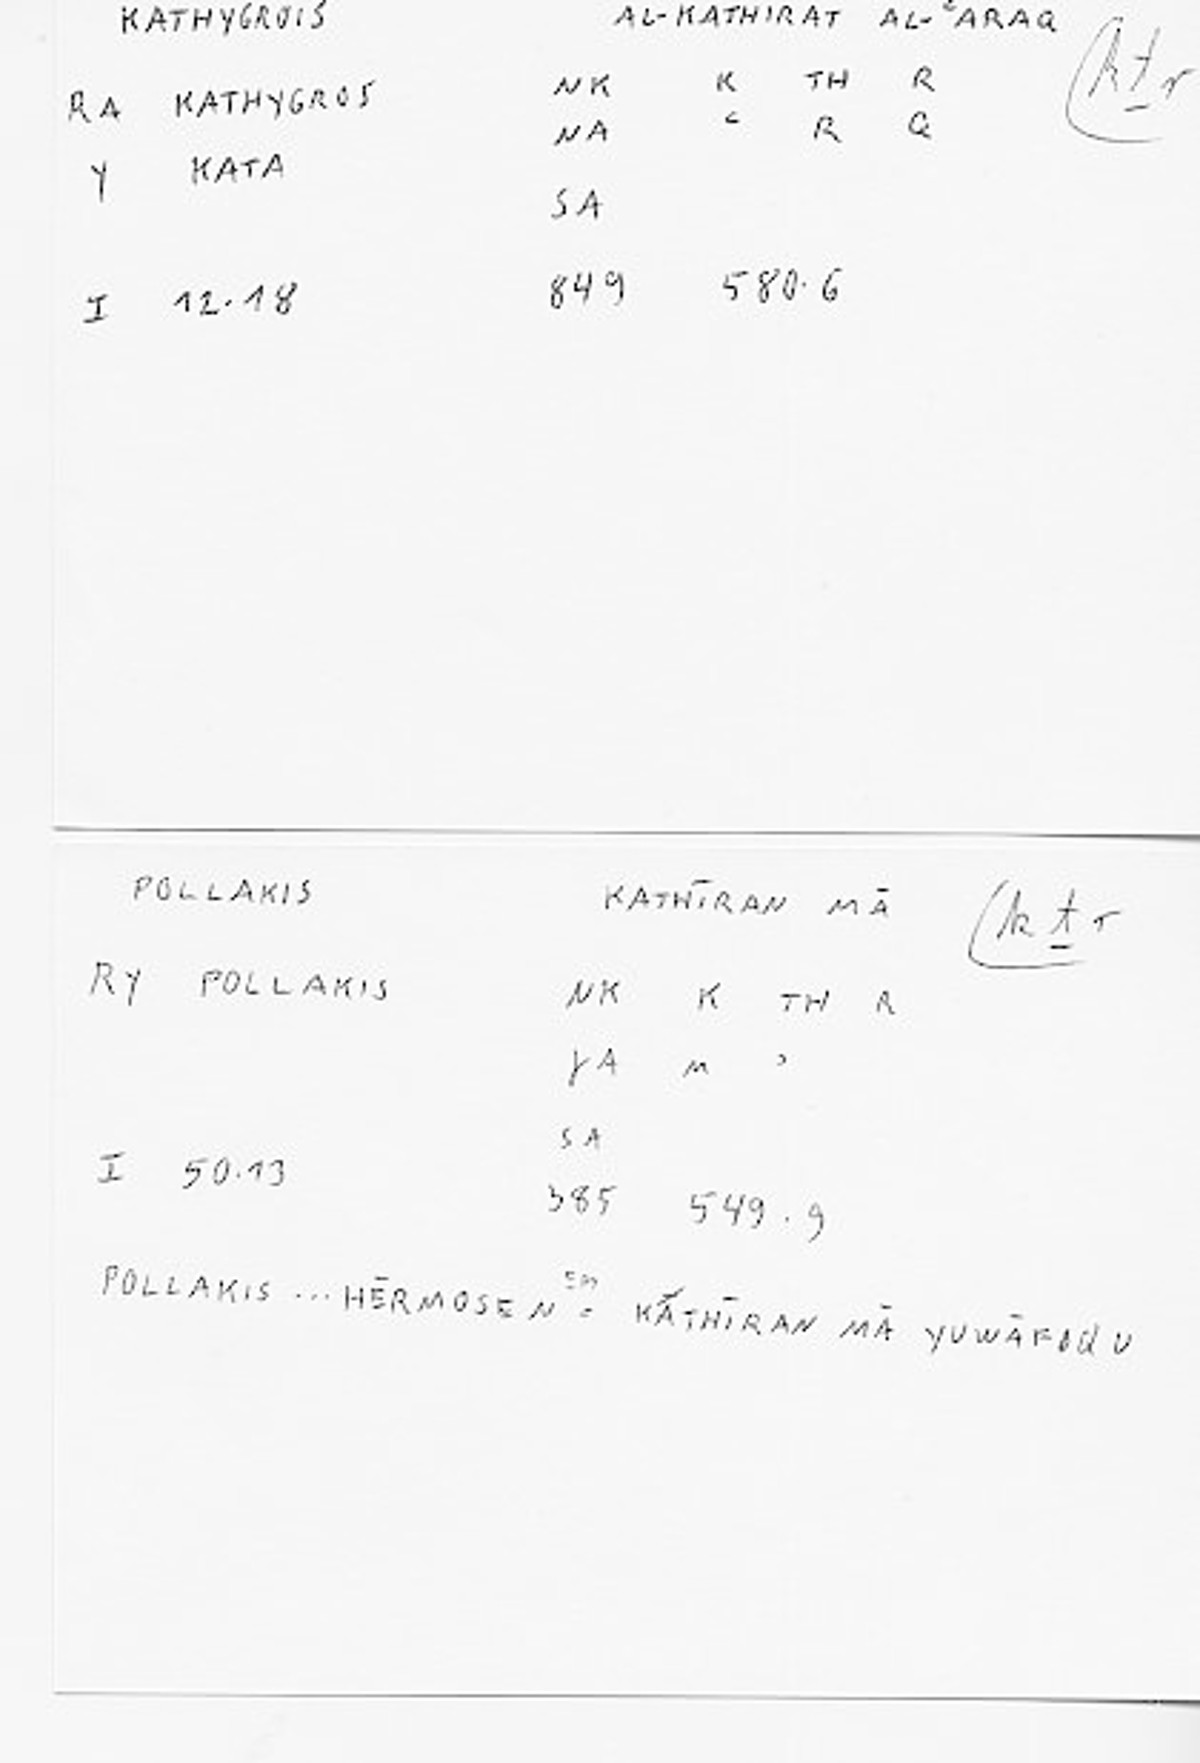 KATHYGROIS AL-KATHIRAT AL-ʿARAQ (kṯr
RA KATHYGROS NK K TH R
NA ʿ R Q
Y KATA
SA
I 12.18 849 580.6
POLLAKIS KATHĪRAN MĀ (kṯr
RY POLLAKIS NK K TH R
YA M ʾ
SA
I 50.13 385 549.9
POLLAKIS ... HĒRMOSEN KATHĪRAN MĀ YUWĀFOQU